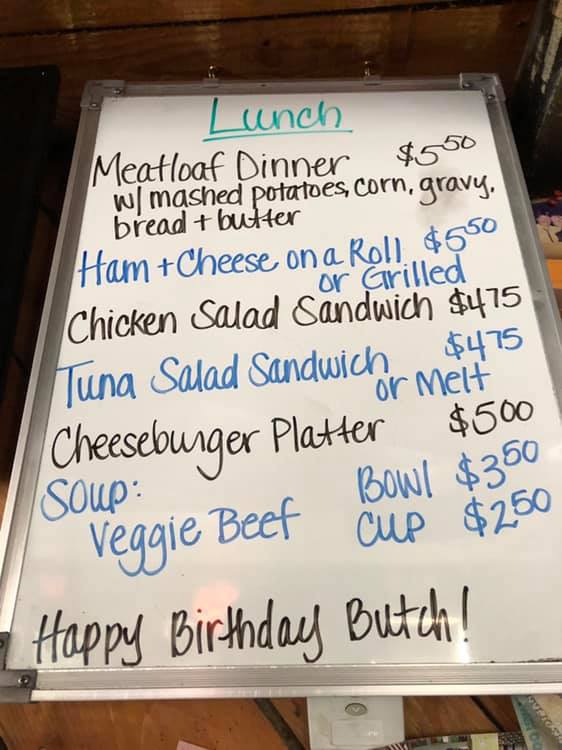 Lunch
Meatloaf Dinner $5 50
w/ mashed potatoes, corn, gravy,
bread + butter
Ham + Cheese on a Roll $5 50
or Grilled
Chicken Salad Sandwich $4 75
Tuna Salad Sandwich $4 75
or Melt
Cheeseburger Platter $5 00
Soup: Bowl $3 50
Veggie Beef Cup $2 50
Happy Birthday Butch!